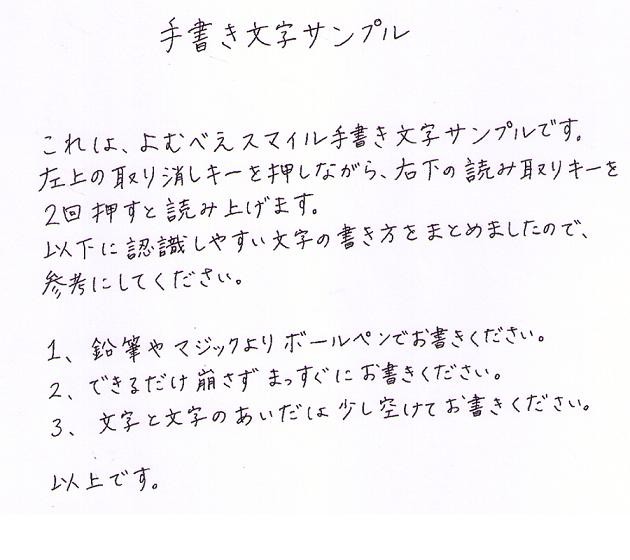 手書き文字サンプル
これは、よむべえスマイル手書き文字サンプルです。
左上の取り消しキーを押しながら、右下の読み取りキーを
2回押すと読み上げます。
以下に認識しやすい文字の書き方をまとめましたので、
参考にしてください。
1、鉛筆やマジックよりボールペンでお書きください。
2、できるだけ崩さずまっすぐにお書きください。
3、文字と文字のあいだは少し空けてお書きください。
以上です。